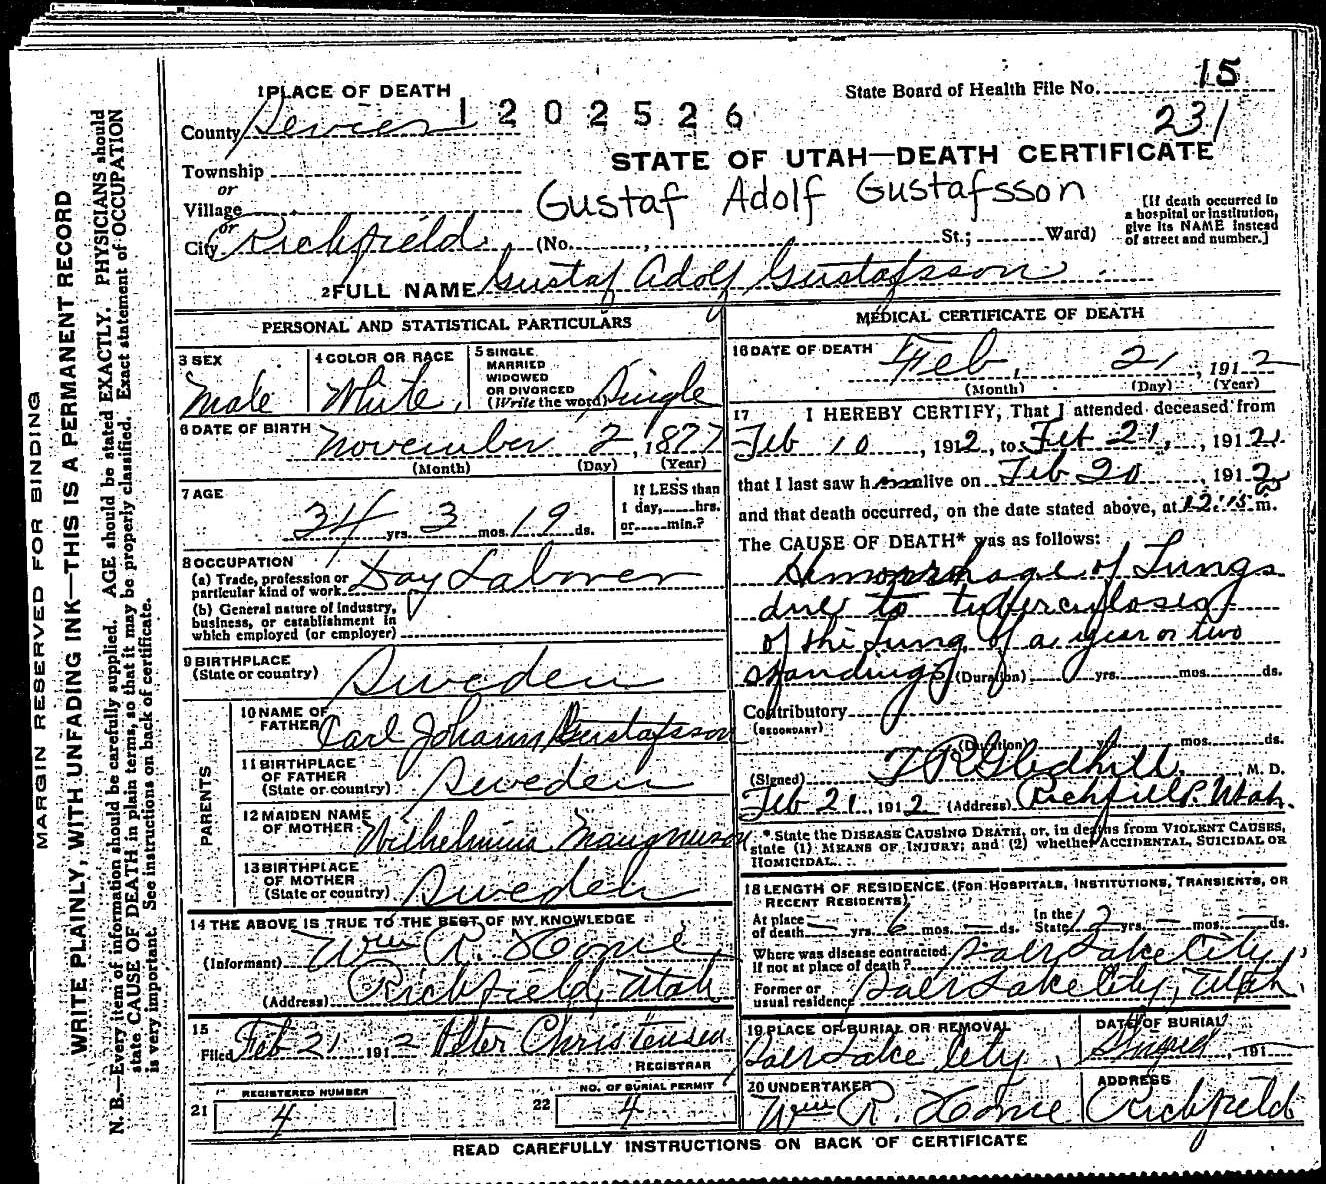 1 PLACE OF DEATH
State Board of Health File No. 15
1202526
231
County Sevier
STATE OF UTAH—DEATH CERTIFICATE
Township
or
Village
Gustaf Adolf Gustafsson
[If death occurred in a hospital or institution, give its NAME instead of street and number.]
or
City Richfield (No. , St.; Ward)
2 FULL NAME Gustaf Adolf Gustafsson
PERSONAL AND STATISTICAL PARTICULARS
3 SEX
Male
4 COLOR OR RACE
White
5 SINGLE
MARRIED
WIDOWED
OR DIVORCED
(Write the word) Single
6 DATE OF BIRTH
November 2, 1877
(Month) (Day) (Year)
7 AGE
34 yrs. 3 mos. 19 ds.
If LESS than
1 day, hrs.
or min.?
8 OCCUPATION
(a) Trade, profession or
particular kind of work Day Laborer
(b) General nature of industry,
business, or establishment in
which employed (or employer)
9 BIRTHPLACE
(State or country)
Sweden
PARENTS
10 NAME OF
FATHER Carl Johann Gustafsson
11 BIRTHPLACE
OF FATHER
(State or country) Sweden
12 MAIDEN NAME
OF MOTHER Wilhelmina
13 BIRTHPLACE
OF MOTHER
(State or country) Sweden
14 THE ABOVE IS TRUE TO THE BEST OF MY KNOWLEDGE
(Informant) Wm R.
(Address) Richfield, Utah
15
Filed Feb 21 1912 Peter Christensen
REGISTRAR
REGISTERED NUMBER
21 4
NO. OF BURIAL PERMIT
22 4
MEDICAL CERTIFICATE OF DEATH
16 DATE OF DEATH Feb. 21, 1912
(Month) (Day) (Year)
17 I HEREBY CERTIFY, That I attended deceased from
Feb 10, 1912, to Feb 21, 191
that I last saw h alive on Feb 20, 1912
and that death occurred, on the date stated above, at 12:15 m.
The CAUSE OF DEATH* was as follows:
of Lungs
due to tuberculosis
of the Lung of a year or two
standing (Duration) yrs. mos. ds.
Contributory
(SECONDARY)
(Duration) yrs. mos. ds.
(Signed) T R Gledhill, M. D.
Feb 21 1912 (Address) Richfield, Utah.
*State the DISEASE CAUSING DEATH, or, in deaths from VIOLENT CAUSES,
state (1) MEANS OF INJURY; and (2) whether ACCIDENTAL, SUICIDAL OR
HOMICIDAL.
18 LENGTH OF RESIDENCE (FOR HOSPITALS, INSTITUTIONS, TRANSIENTS, OR
RECENT RESIDENTS)
At place
of death — yrs. 6 mos. — ds. In the
State yrs. — mos. — ds.
Where was disease contracted,
if not at place of death? Salt Lake City
Former or
usual residence Salt Lake City, Utah.
19 PLACE OF BURIAL OR REMOVAL
Salt Lake City,
DATE OF BURIAL
, 191
20 UNDERTAKER
Wm R.
ADDRESS
Richfield
READ CAREFULLY INSTRUCTIONS ON BACK OF CERTIFICATE
MARGIN RESERVED FOR BINDING
WRITE PLAINLY, WITH UNFADING INK—THIS IS A PERMANENT RECORD
N. B.—Every item of information should be carefully supplied. AGE should be stated EXACTLY. PHYSICIANS should
state CAUSE OF DEATH in plain terms, so that it may be properly classified. Exact statement of OCCUPATION
is very important. See instructions on back of certificate.